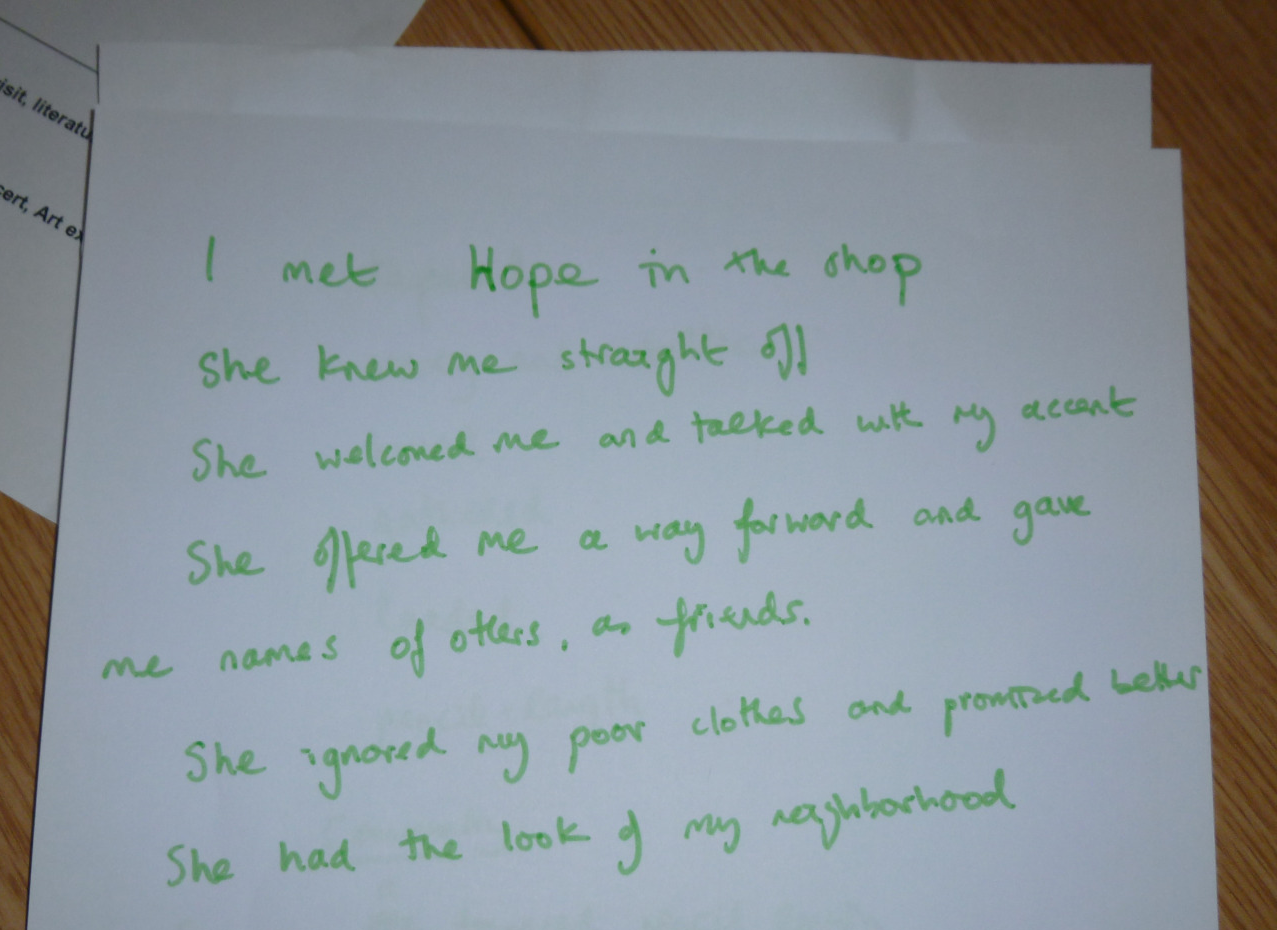 isit, literatu
cert, Art ex
I met Hope in the shop
She knew me straight off
She welcomed me and talked with my accent
She offered me a way forward and gave
me names of others, as friends.
She ignored my poor clothes and promised better
She had the look of my neighborhood